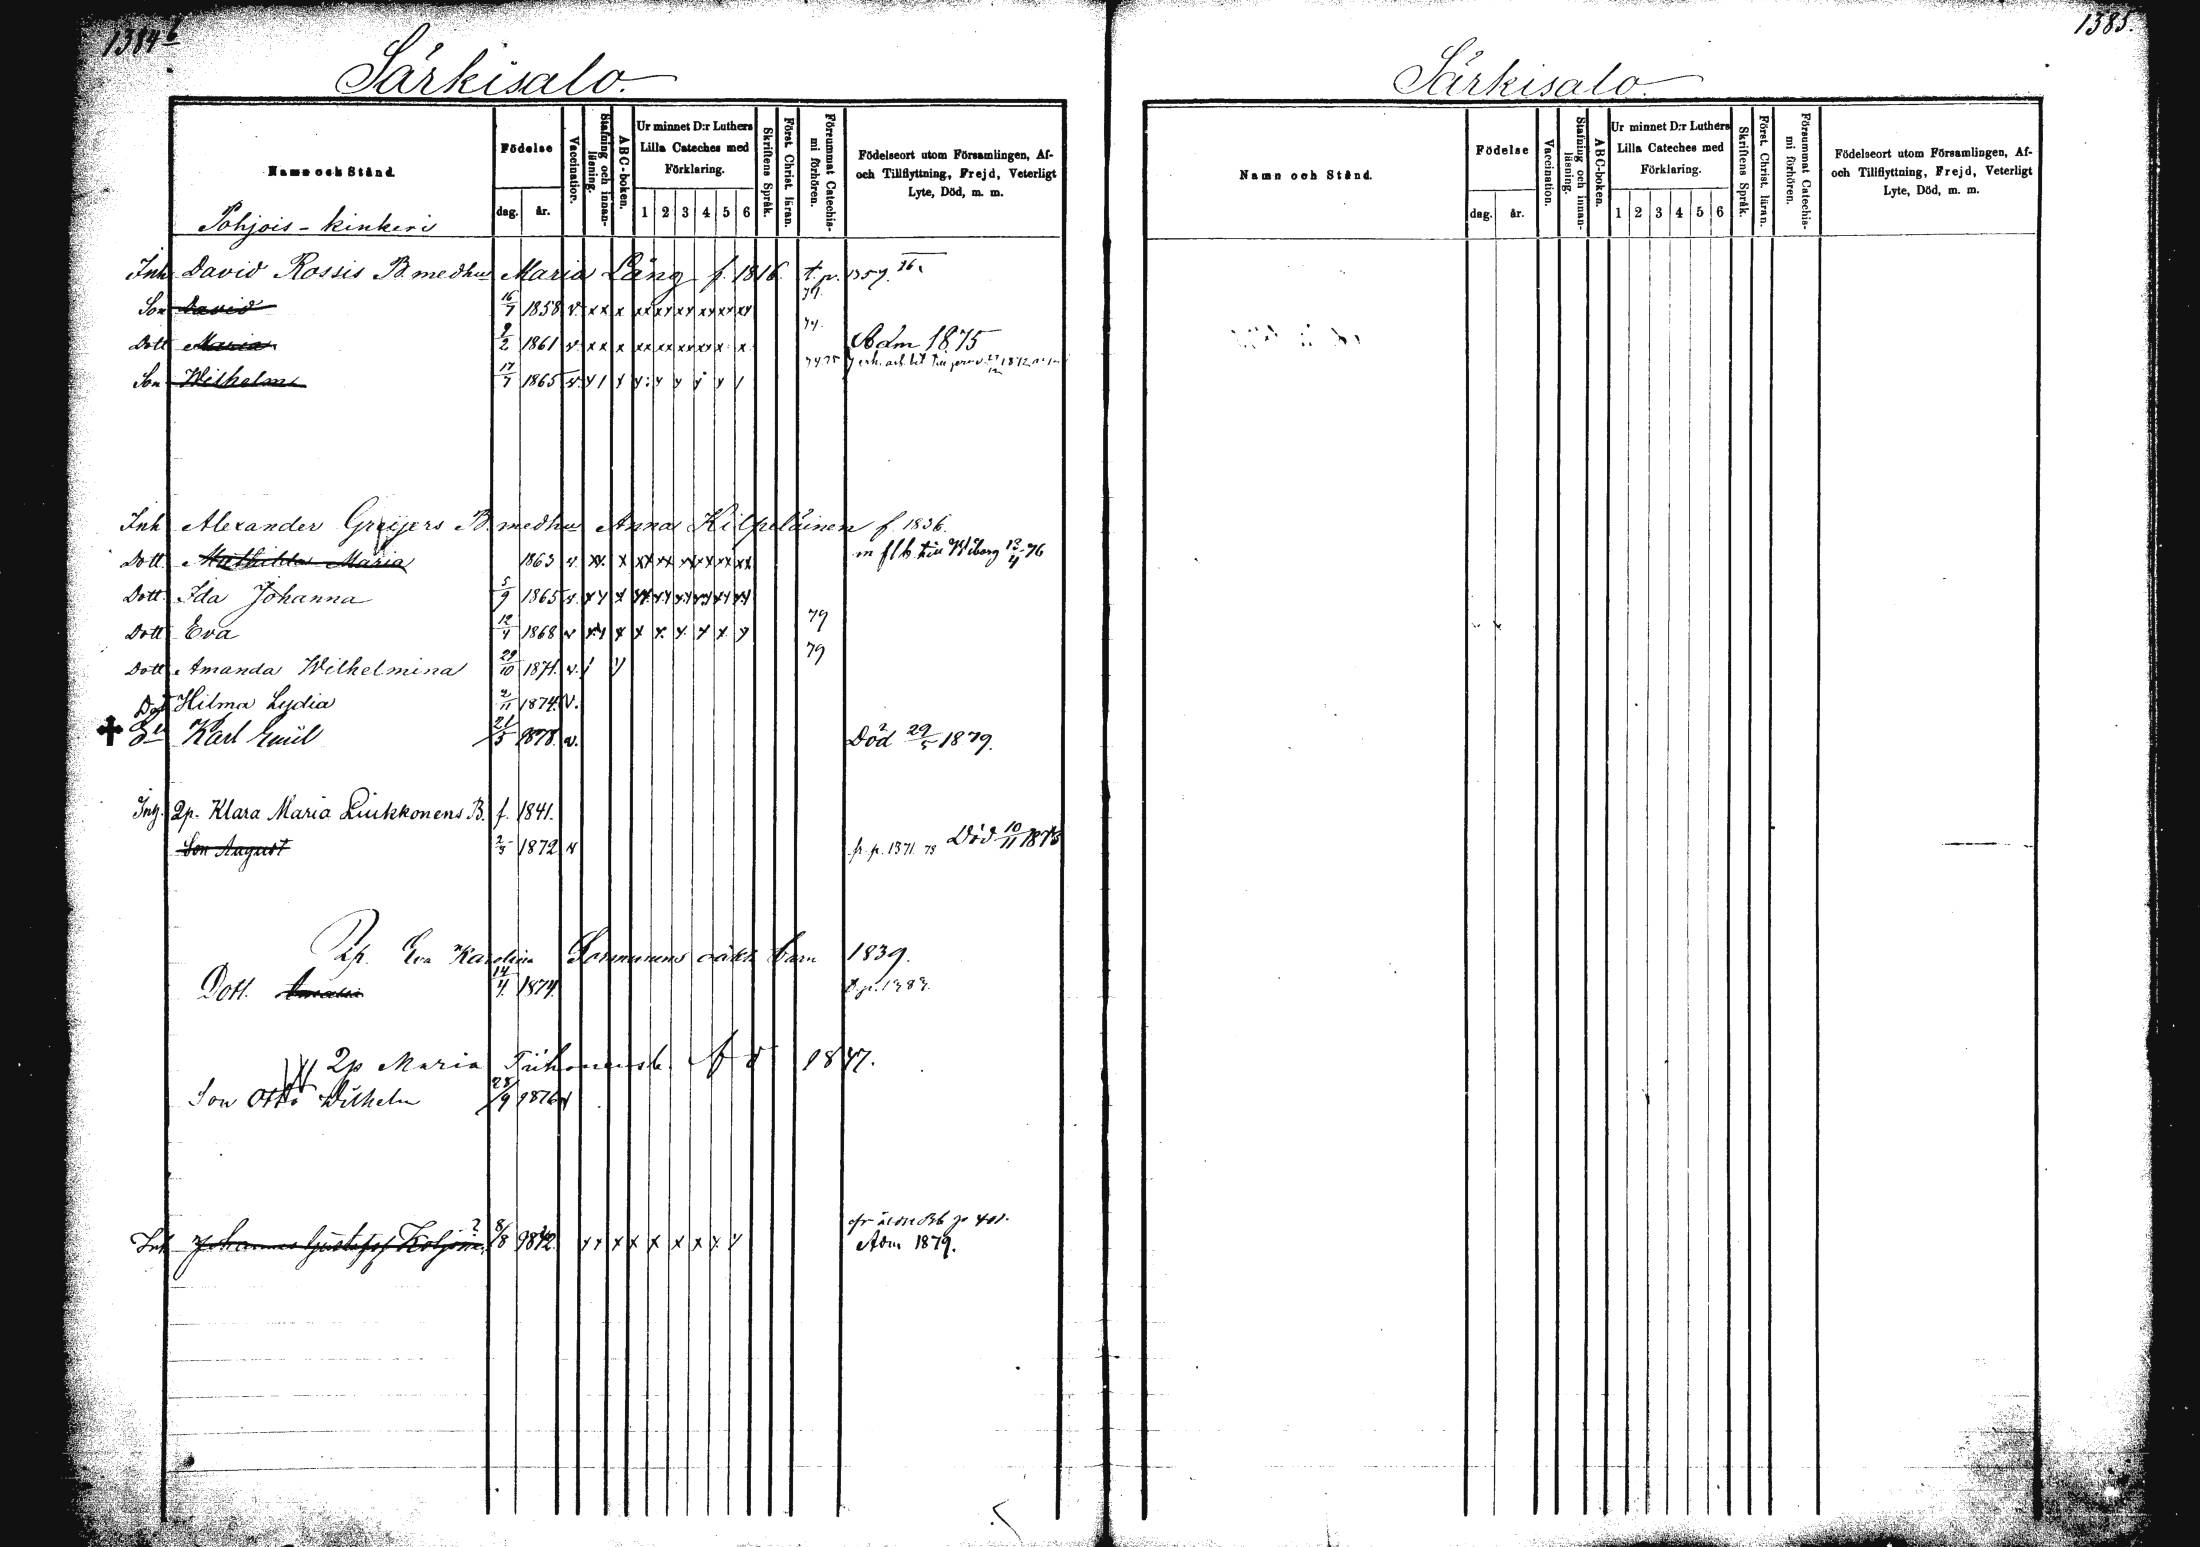 1384 b
Särkisalo.
Namn och Stånd.
Födelse
dag. år.
Vaccination.
Stafning och innanläsning.
ABC-boken.
Ur minnet D:r Luthers Lilla Cateches med Förklaring.
1 2 3 4 5 6
Skriftens Språk.
Först. Christ. läran.
Försummat Catechismi förhören.
Födelseort utom Församlingen, Af- och Tillflyttning, Frejd, Veterligt Lyte, Död, m. m.
Pohjois-kinkeri
Inh David Rossis B. med hu Maria Läng f. 1816. t. p. 1357. 76
Son David 16/7 1858 v. xx x xx xx xx xx xx xx 74.
Dott Maria 9/2 1861 v. xx x xx xx xx xx x x 74. Adm 1875
Son Wilhelm 17/7 1865 v.
Inh Alexander Greijers B. med hu Anna Kilpeläinen f 1836.
Dott Mathilda Maria 1863 v. xx. x xx xx xx xx xx xx m flb till Wiborg 13/4 76
Dott Ida Johanna 5/9 1865 v. xx x xx xx xx xx xx xx
Dott Eva 12/4 1868 v xx x x x x x x x 79
Dott Amanda Wilhelmina 29/10 1871. v. 79
Dot Hilma Lydia 2/11 1874. V.
Son Karl Emil 21/5 1878. v. Död 29/5 1879.
Inh. 2p. Klara Maria Liukkonens B. f. 1841.
Son August 2/3 1872 v fr. p. 1371. 73 Död 10/11 1873
2p. Eva Karolina Sormunens oäkta barn 1839.
Dott. Amalia 14/4 1874. t. p. 1383.
2p Maria Tiihonens b. f d 1847.
Son Otto Wilhelm 28/9 1876 v
Inh Johannes Gustafsf Koljonen 8/8 x x x x x x x x Adm 1879.
1385.
Särkisalo.
Namn och Stånd.
Födelse
dag. år.
Vaccination.
Stafning och innanläsning.
ABC-boken.
Ur minnet D:r Luthers Lilla Cateches med Förklaring.
1 2 3 4 5 6
Skriftens Språk.
Först. Christ. läran.
Försummat Catechismi förhören.
Födelseort utom Församlingen, Af- och Tillflyttning, Frejd, Veterligt Lyte, Död, m. m.